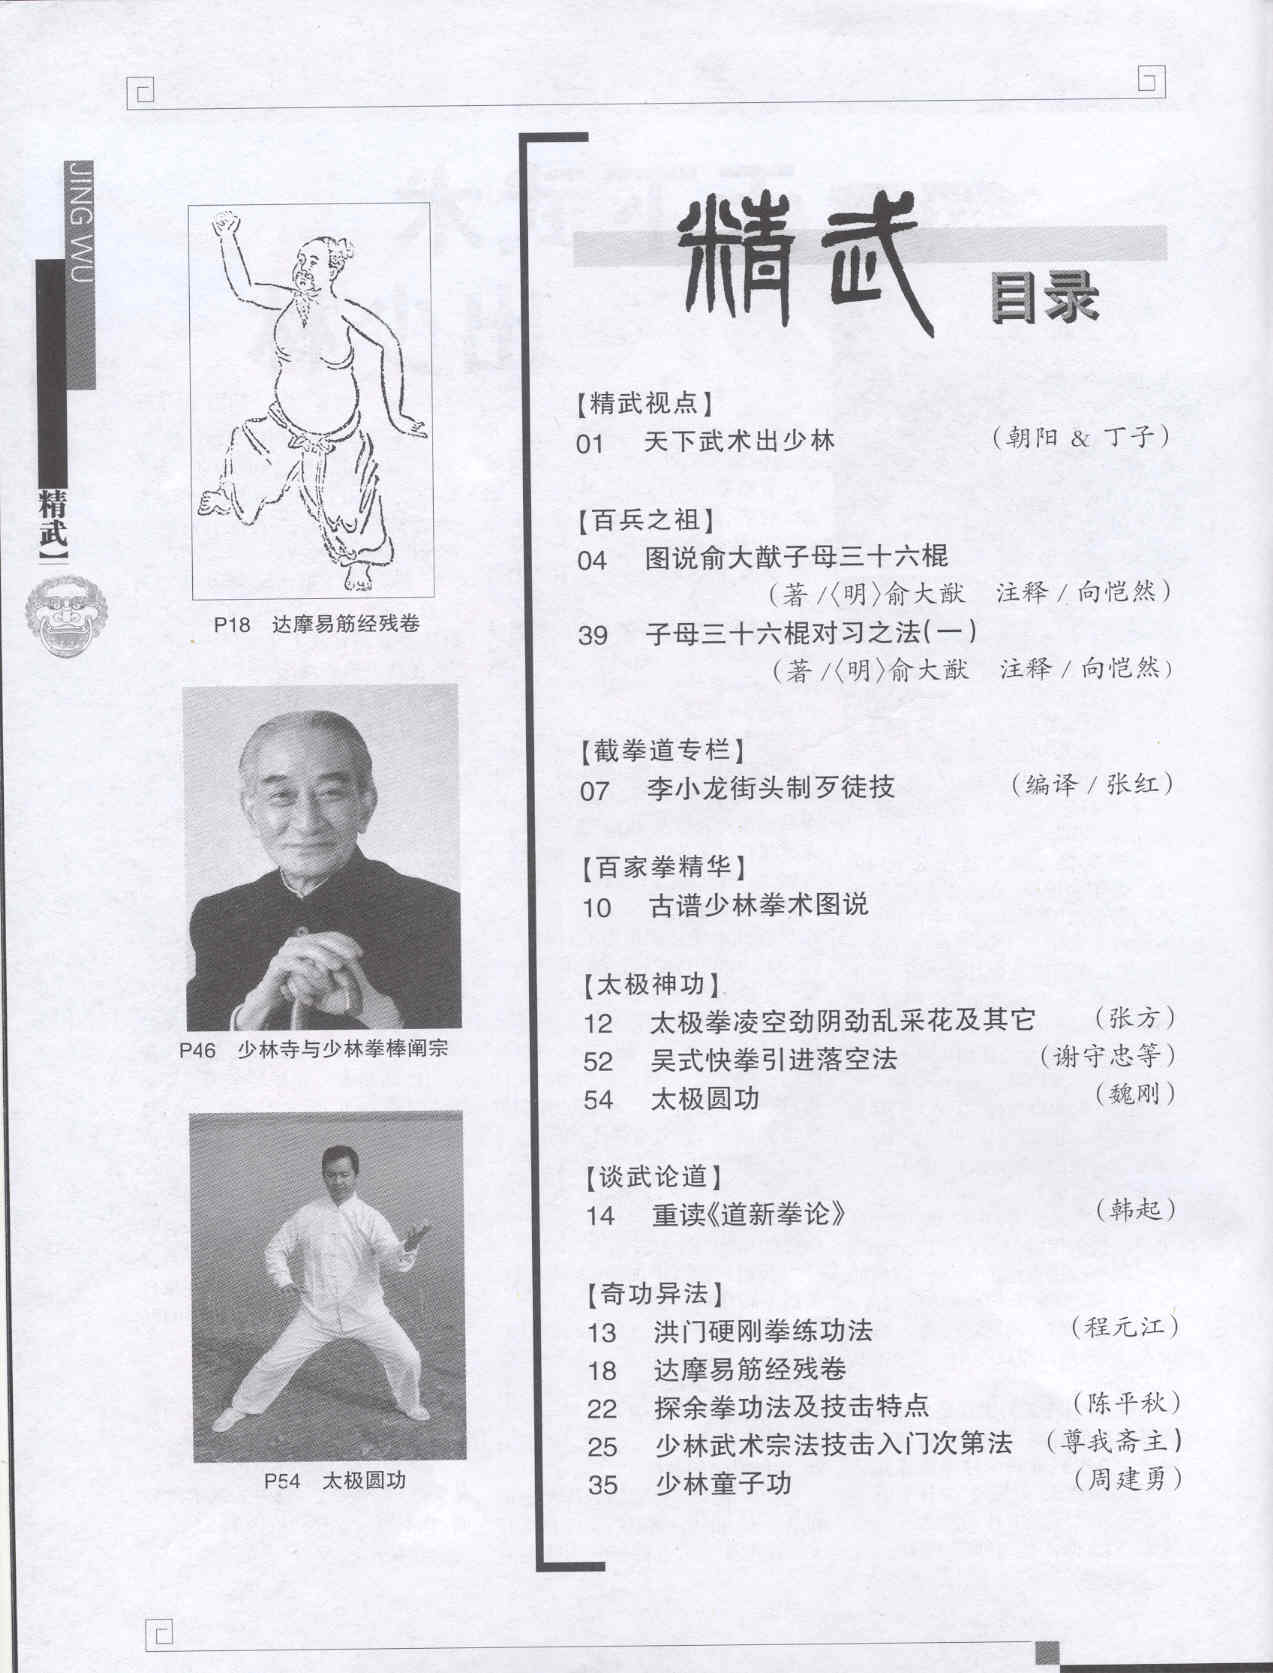 JING WU
精武】
P18 达摩易筋经残卷
P46 少林寺与少林拳棒阐宗
P54 太极圆功
精武
目录
【精武视点】
01 天下武术出少林 （朝阳 & 丁子）
【百兵之祖】
04 图说俞大猷子母三十六棍
（著/〈明〉俞大猷 注释/向恺然）
39 子母三十六棍对习之法(一)
（著/〈明〉俞大猷 注释/向恺然）
【截拳道专栏】
07 李小龙街头制歹徒技 （编译/张红）
【百家拳精华】
10 古谱少林拳术图说
【太极神功】
12 太极拳凌空劲阴劲乱采花及其它 （张方）
52 吴式快拳引进落空法 （谢守忠等）
54 太极圆功 （魏刚）
【谈武论道】
14 重读《道新拳论》 （韩起）
【奇功异法】
13 洪门硬刚拳练功法 （程元江）
18 达摩易筋经残卷
22 探余拳功法及技击特点 （陈平秋）
25 少林武术宗法技击入门次第法 （尊我斋主）
35 少林童子功 （周建勇）